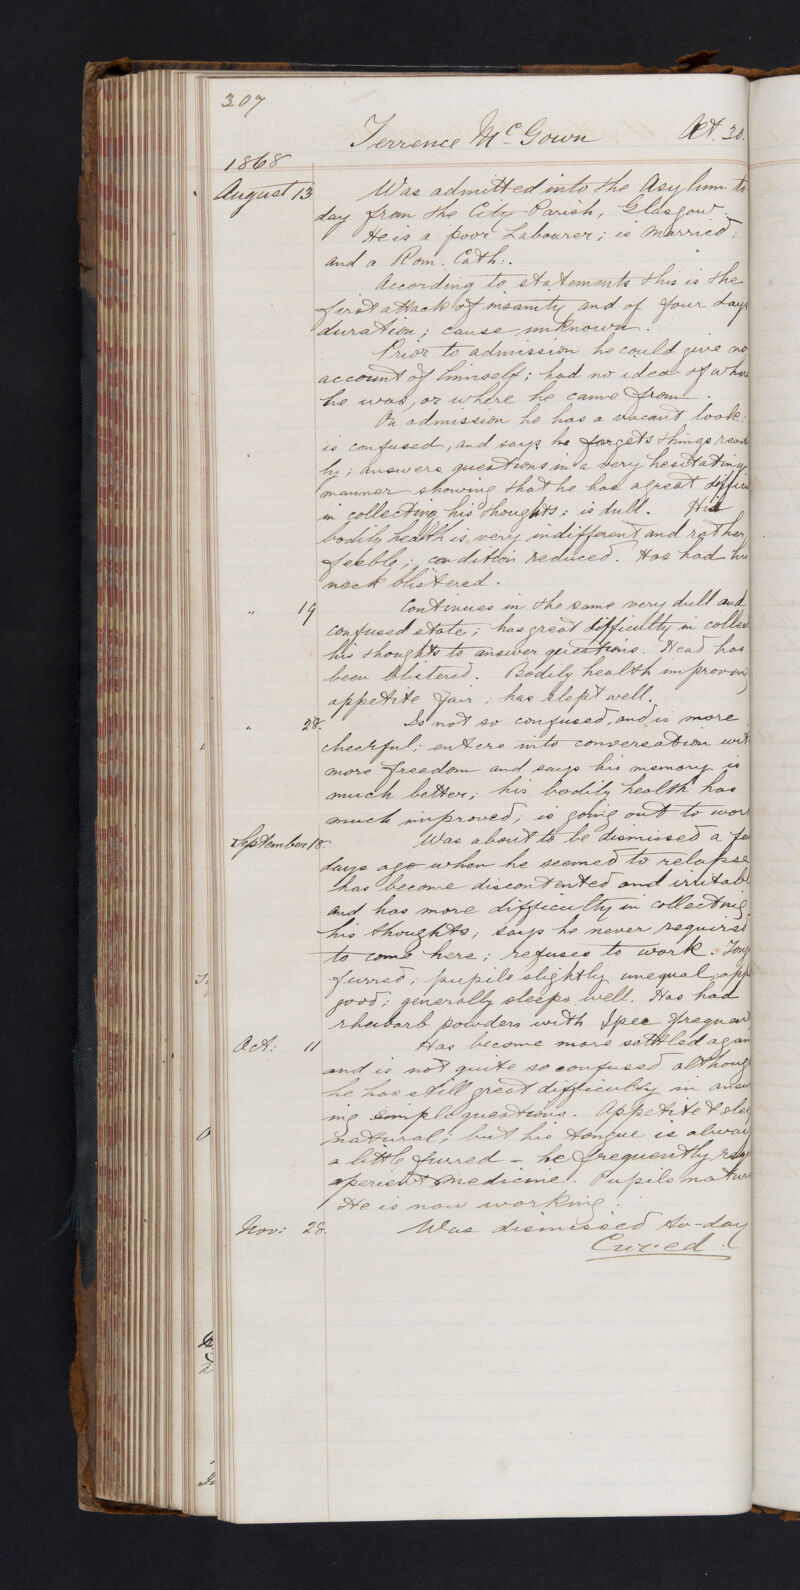 307
Terrence McGown Aet. 30.
1868
August 13 Was admitted into the Asylum to
day from the City Parish, Glasgow.
He is a poor Labourer; is married;
and a Rom. Cath:.
According to statements this is the
first attack of insanity and of four days
duration; cause unknown.
Prior to admission he could give no
account of himself; had no idea of where
he was, or where he came from.
On admission he has a vacant look;
is confused, and says he forgets things read
ly; answers questions in a very hesitating
manner showing that he has a great diffic
in collecting his thoughts; is dull. His
bodily health is very indifferent and rather
feeble; condition reduced. Has had his
neck blistered.
" 19 Continues in the same very dull and
confused state; has great difficulty in collec
his thoughts to answer questions. Head has
been blistered. Bodily health improving
appetite fair; has slept well.
" 28. Is not so confused, and is more
cheerful; enters into conversation with
more freedom and says his memory is
much better; his bodily health has
much improved; is going out to work
September 18. Was about to be dismissed a few
days ago when he seemed to relapse
has become discontented and irritabl
and has more difficulty in collecting
his thoughts; says he never required
to come here; refuses to work. Tong
furred; pupils slightly unequal; app
good; generally sleeps well. Has had
rhubarb powders with Ipec frequen
Oct: 11 Has become more settled again
and is not quite so confused althoug
he has still great difficulty in answ
ing simple questions. Appetite & slee
natural; but his tongue is alway
a little furred – he frequently req
aperient medicine. Pupils natur
He is now working.
Nov: 28. Was dismissed to-day
Cured.